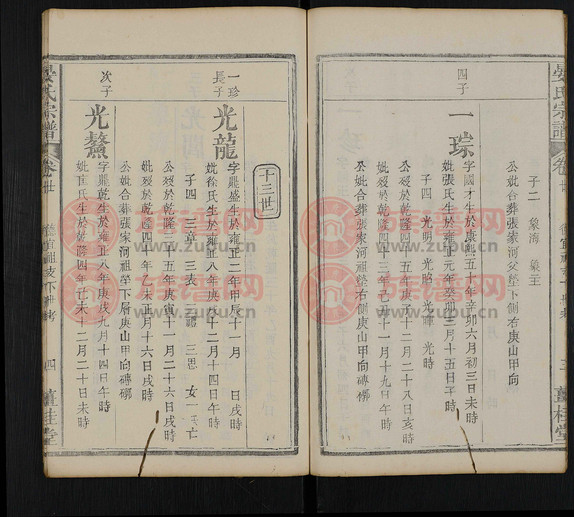 晏氏宗譜 卷廿
三 薑桂堂
子二 象海 象主
公妣合葬張家河父塋下側右庚山甲向
四子
一琮
字國才生於康熙五十年辛卯六月初三日未時
妣張氏生於雍正元年癸卯三月十五日子時
子四 光明 光昭 光輝 光時
公歿於乾隆四十二年十二月二十八日亥時
妣歿於乾隆四十三年己亥十一月十九日午時
公妣合葬張家河祖塋右側庚山甲向
十三世
一珍長子
光龍
字麗盛生於雍正二年甲辰十一月 日戌時
妣徐氏生於雍正八年庚戌十二月十四日午時
子四 三章 三表 三聰 三思 女一
公歿於乾隆三十五年庚寅十一月二十六戌時
妣歿於乾隆四十年乙未正月十六日戌時
公妣合葬張家河祖塋下層庚山甲向磚槨
次子
光鰲
字麗乾生於雍正八年庚戌九月十四日午時
妣崔氏生於乾隆四年己未十二月二十日未時
晏氏宗譜 卷廿
四 薑桂堂
www.zupu.cn